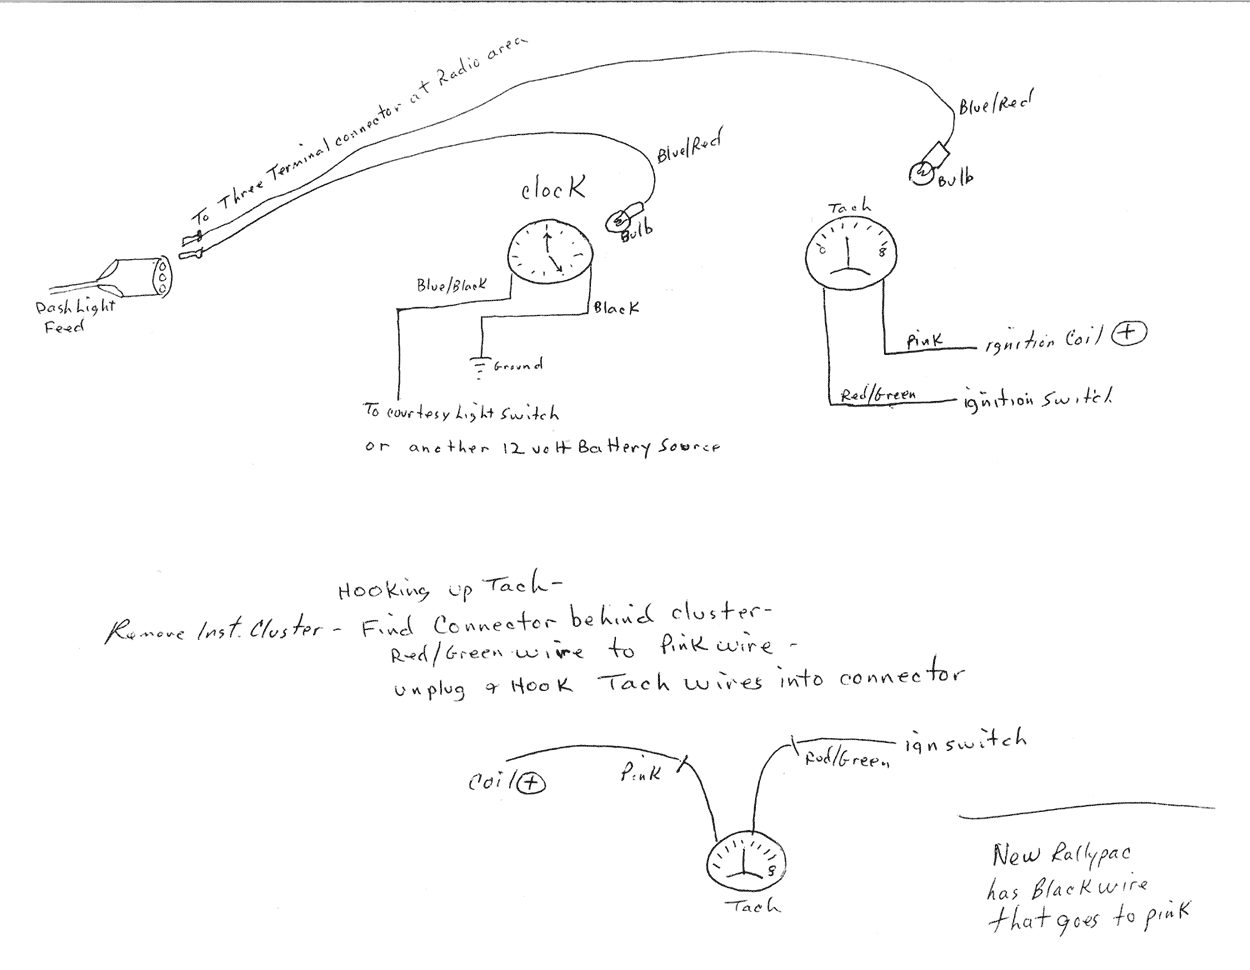 To Three Terminal connector at Radio area
Blue/Red
Blue/Red
Bulb
clock
Bulb
Tach
0
8
Dash Light
Feed
Blue/Black
Black
Ground
Pink
ignition Coil +
Red/Green
ignition switch
To courtesy Light switch
or another 12 volt Battery Source
Hooking up Tach-
Remove Inst. Cluster - Find Connector behind cluster-
Red/Green wire to Pink wire -
unplug & Hook Tach wires into connector
Coil +
Pink
Red/Green
ign switch
8
Tach
New Rallypac
has Black wire
that goes to pink